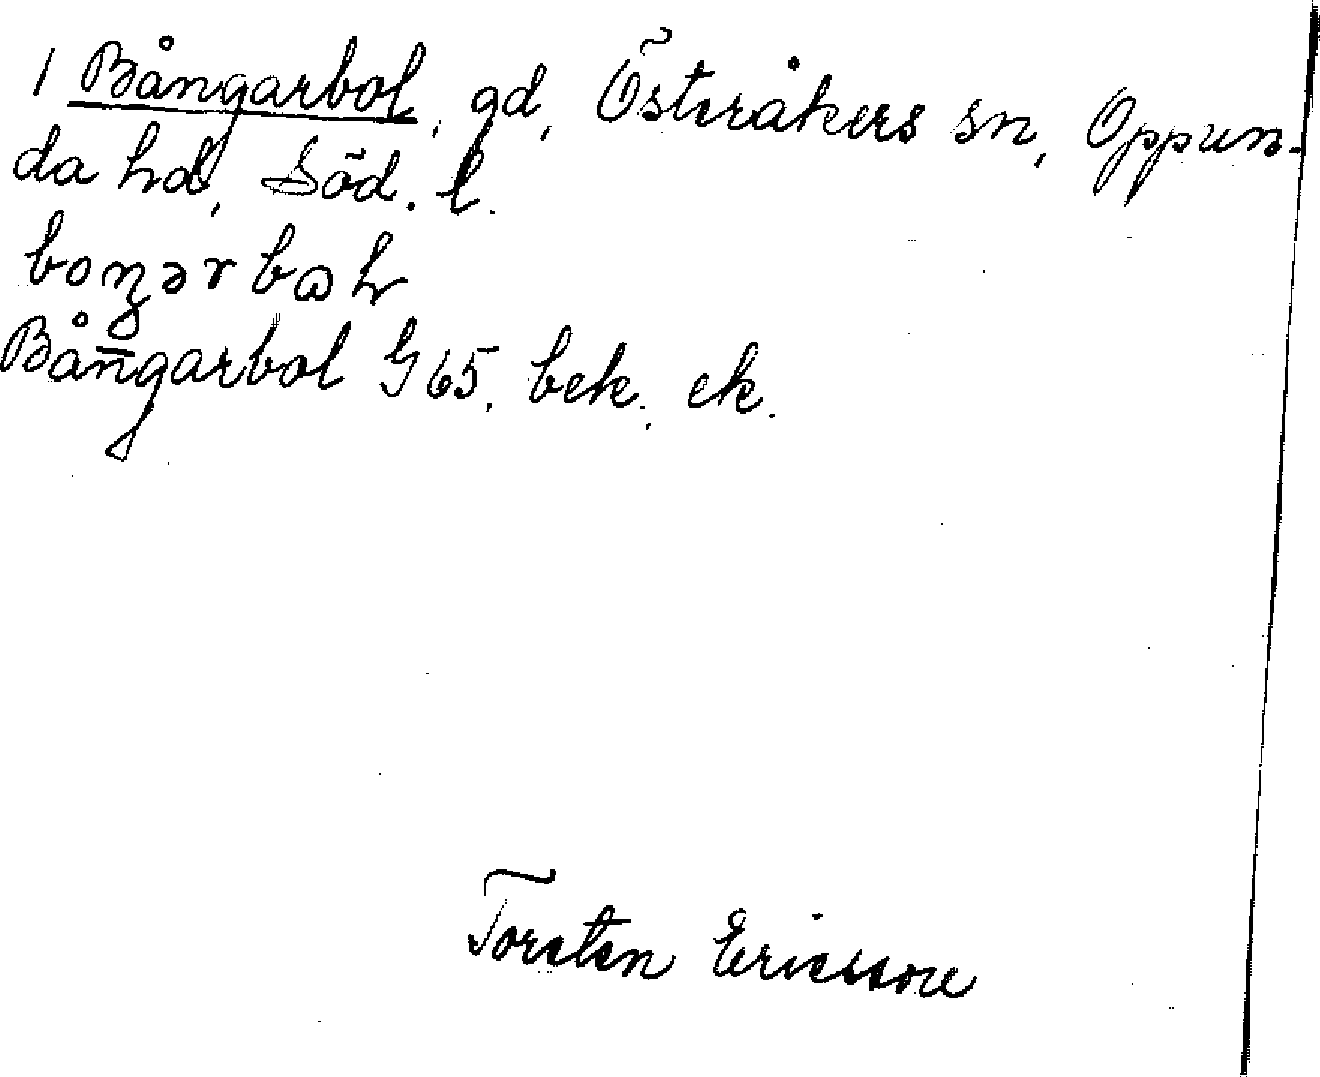 1 Bångarbol, gd, Österåkers sn, Oppun-
da hd, Söd. l.
boŋərbɷɫ
Bångarbol G 65. bek. ek.
Torsten Ericsson